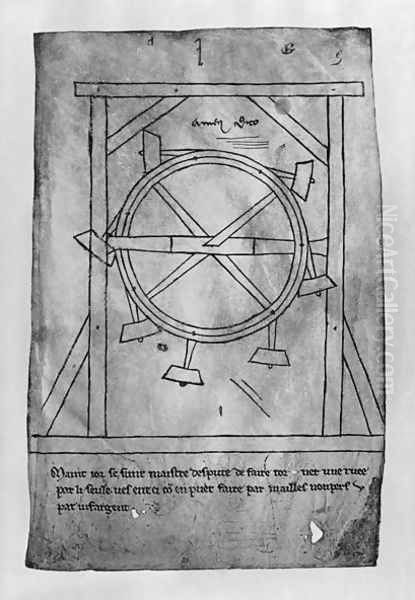 amen dico
Maint ior se sunt maistre despute de faire tor ner une ruee
par li seule ves ent ci cõ en puet faire par mailles nonpers v
par vif argent
NiceArtGallery.com